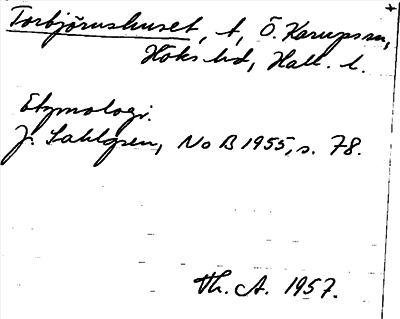 Torbjörnshuset, t, Ö. Karups sn,
Höks hd, Hall. l.
Etymologi.
J. Sahlgren, NoB 1955, s. 78.
Th. A. 1957.